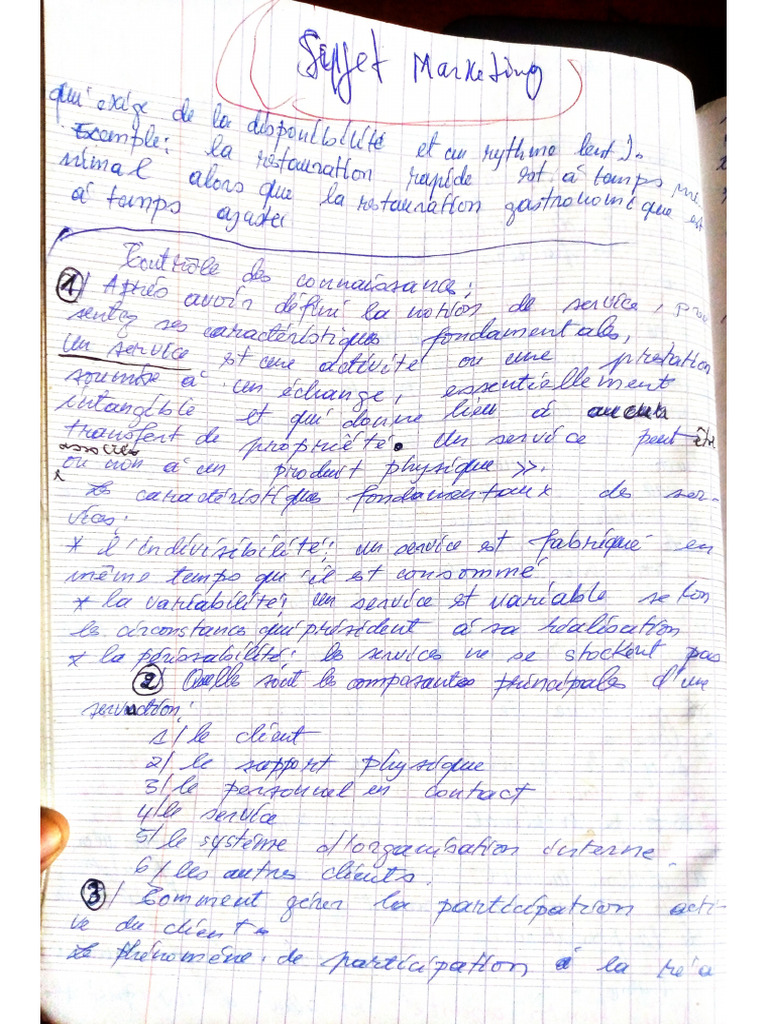 Sujet Marketing
qui exige de la disponibilité et un rythme lent).
Example: la restauration rapide est à temps mi
nimal alors que la restauration gastronomique est
à temps ajusté
Contrôle des connaissances:
1/ Après avoir défini la notion de service, pré
sentez ses caractéristiques fondamentales,
Un service est une activité ou une prestation
soumise à un échange, essentiellement
intangible et qui donne lieu à aucun
transfert de propriété. Un service peut être
associé
ou non à un produit physique >>.
Les caractéristiques fondamentaux des ser-
vices:
* l'indivisibilité: un service est fabriqué en
même temps qu'il est consommé
* la variabilité: un service est variable selon
les circonstances qui président à sa réalisation
* la périssabilité: les services ne se stockent pas
2 Quelles sont les composantes principales d'une
servuction:
1/ le client
2/ le support physique
3/ le personnel en contact
4/ le service
5/ le système d'organisation interne.
6/ les autres clients.
3/ Comment gérer la participation acti-
ve du client.
Le phénomène de participation à la réa